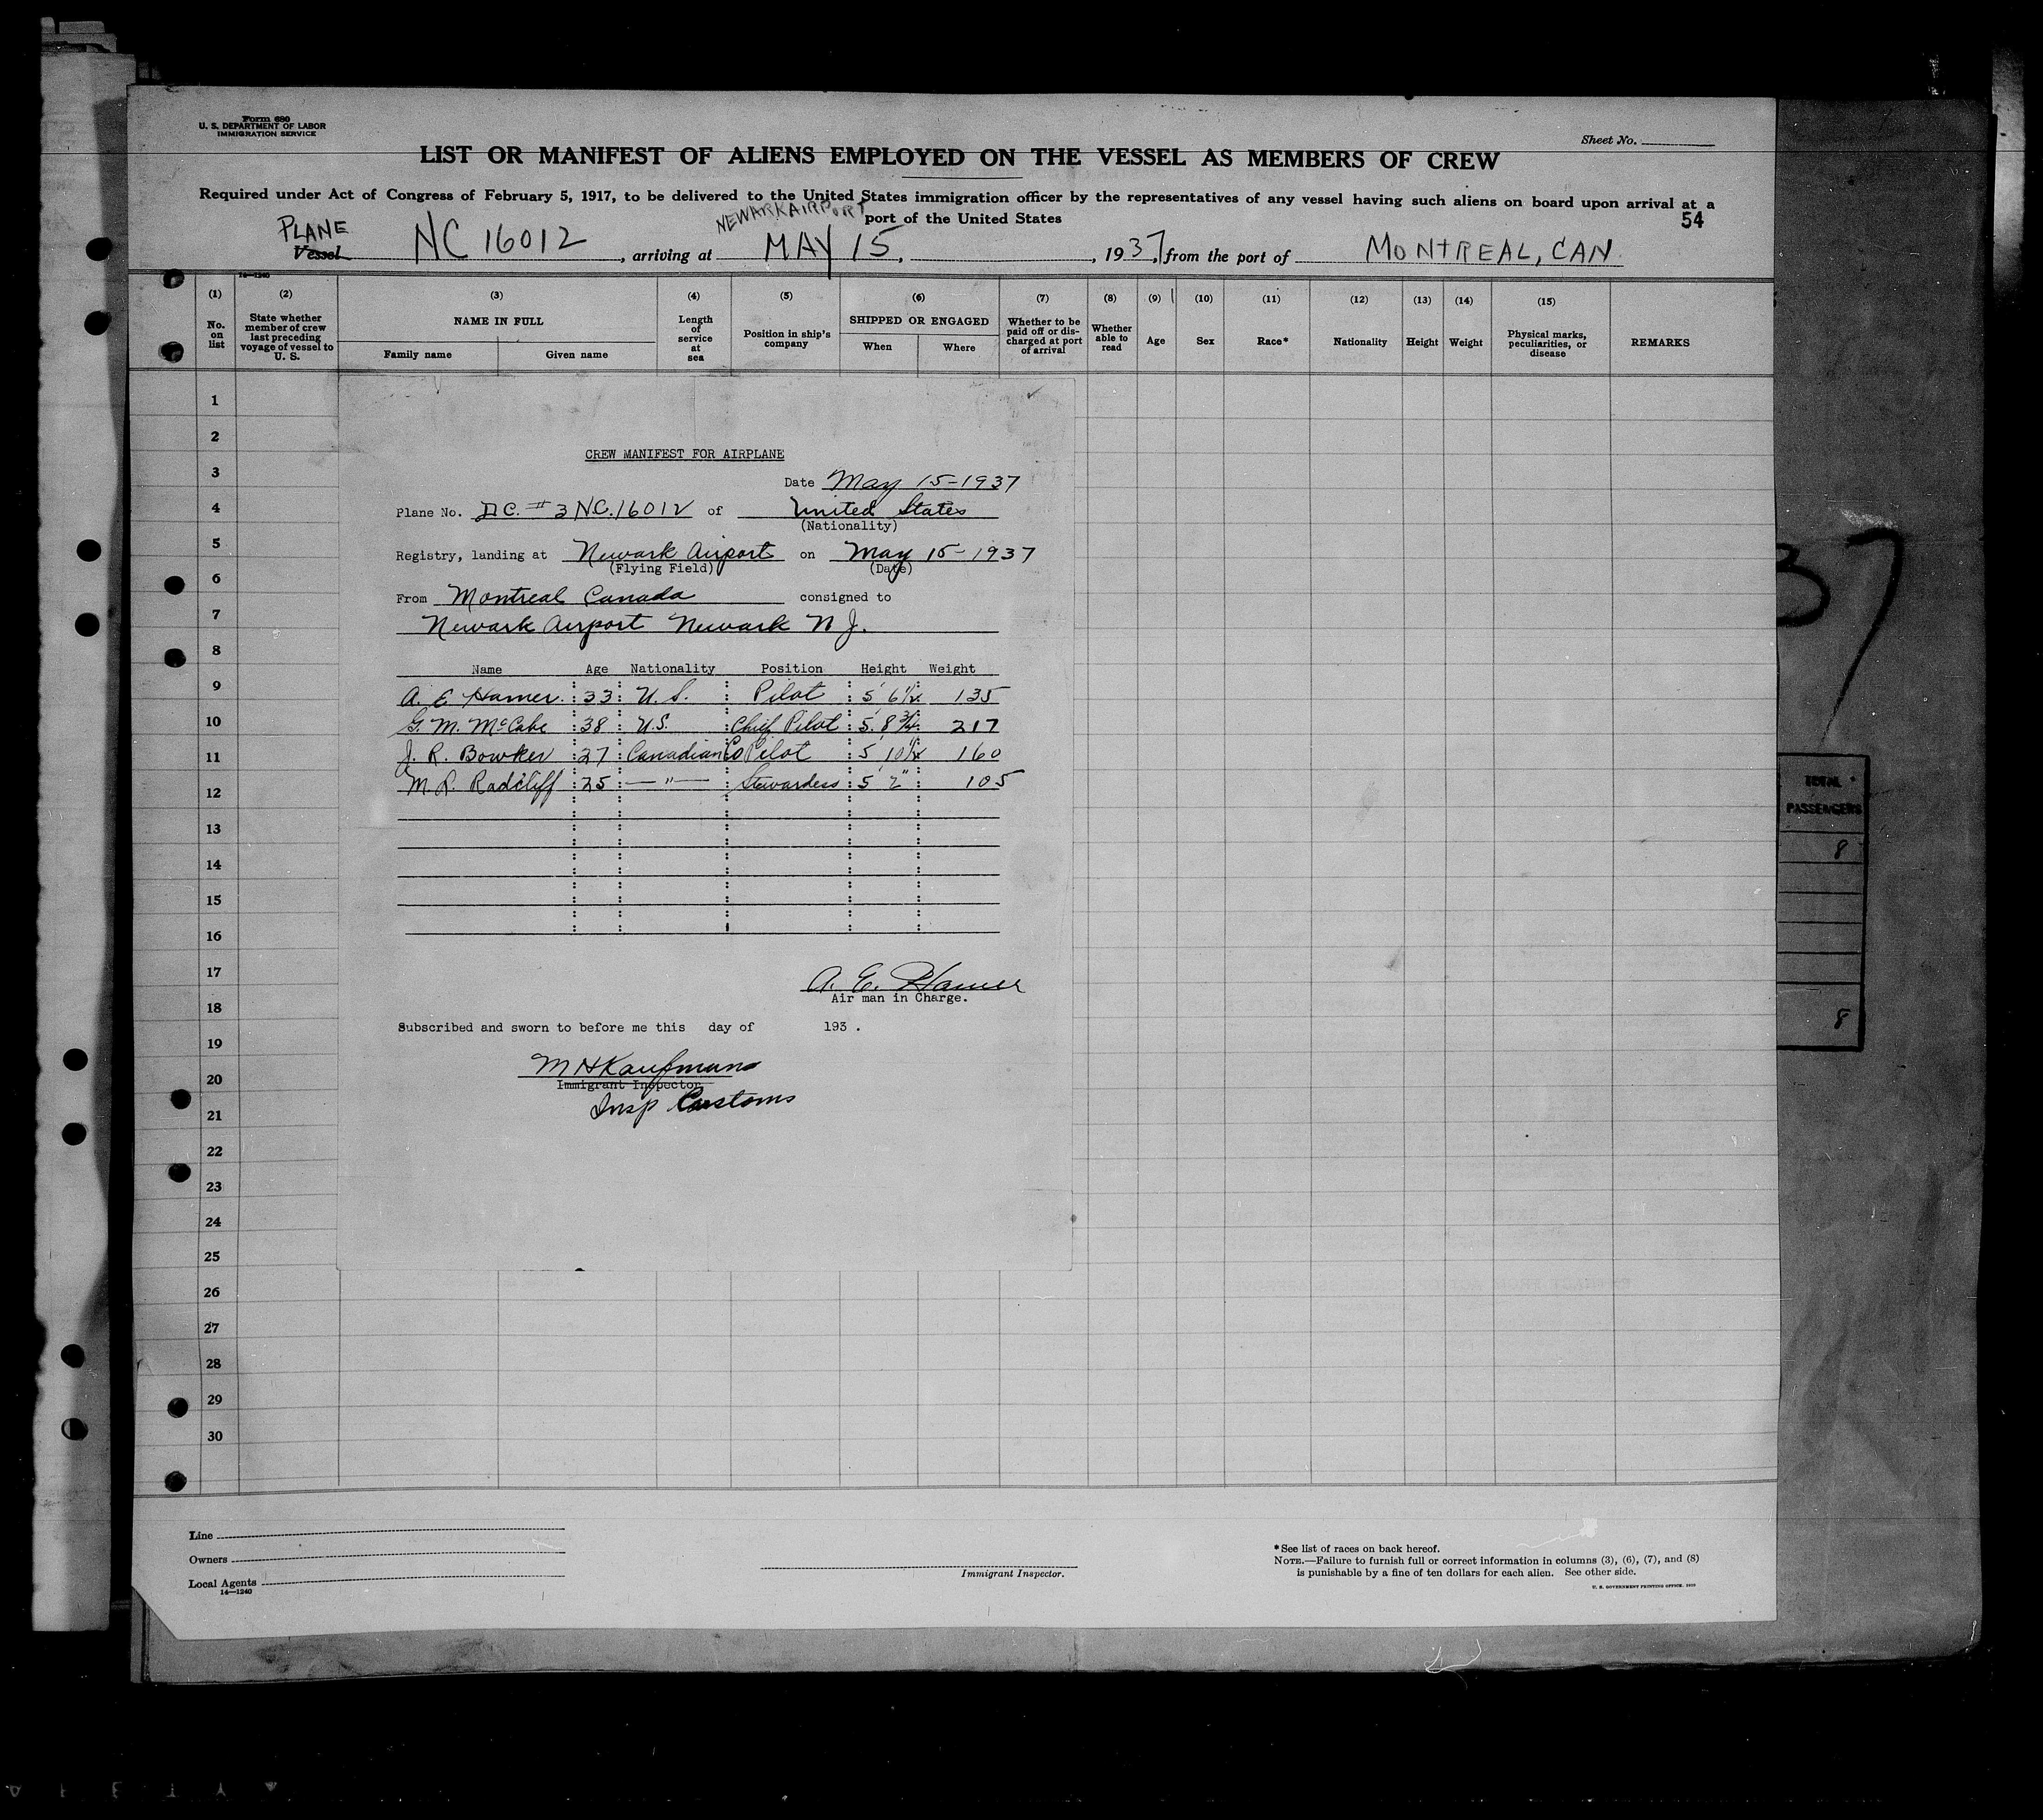 Form 680
U. S. DEPARTMENT OF LABOR
IMMIGRATION SERVICE
Sheet No.
LIST OR MANIFEST OF ALIENS EMPLOYED ON THE VESSEL AS MEMBERS OF CREW
Required under Act of Congress of February 5, 1917, to be delivered to the United States immigration officer by the representatives of any vessel having such aliens on board upon arrival at a
port of the United States
54
NEWARK AIRPORT
PLANE
Vessel NC 16012, arriving at MAY 15, , 1937, from the port of MONTREAL, CAN.
14—1240
(1) No. on list
(2) State whether member of crew last preceding voyage of vessel to U. S.
(3) NAME IN FULL
Family name Given name
(4) Length of service at sea
(5) Position in ship's company
(6) SHIPPED OR ENGAGED
When Where
(7) Whether to be paid off or discharged at port of arrival
(8) Whether able to read
(9) Age
(10) Sex
(11) Race*
(12) Nationality
(13) Height
(14) Weight
(15) Physical marks, peculiarities, or disease
REMARKS
1
2
3
4
5
6
7
8
9
10
11
12
13
14
15
16
17
18
19
20
21
22
23
24
25
26
27
28
29
30
CREW MANIFEST FOR AIRPLANE
Date May 15-1937
Plane No. DC. #3 NC.16012 of United States
(Nationality)
Registry, landing at Newark Airport on May 15-1937
(Flying Field) (Date)
From Montreal Canada consigned to
Newark Airport Newark N J.
Name Age Nationality Position Height Weight
A. E Hamer. 33 U. S. Pilot 5' 6 1/2" 135
G. M. McCabe 38 U.S. Chief Pilot 5' 8 3/4" 217
J. R. Bowker 27 Canadian Co Pilot 5' 10 1/2" 160
M. R. Radcliff 25 — " — Stewardess 5' 2" 105
A. E. Hamer
Air man in Charge.
Subscribed and sworn to before me this day of 193 .
M H Kaufmann
Immigrant Inspector
Insp Customs
37
TOTAL
PASSENGERS
8
8
Line
Owners
Local Agents
14—1240
Immigrant Inspector.
*See list of races on back hereof.
NOTE.—Failure to furnish full or correct information in columns (3), (6), (7), and (8)
is punishable by a fine of ten dollars for each alien. See other side.